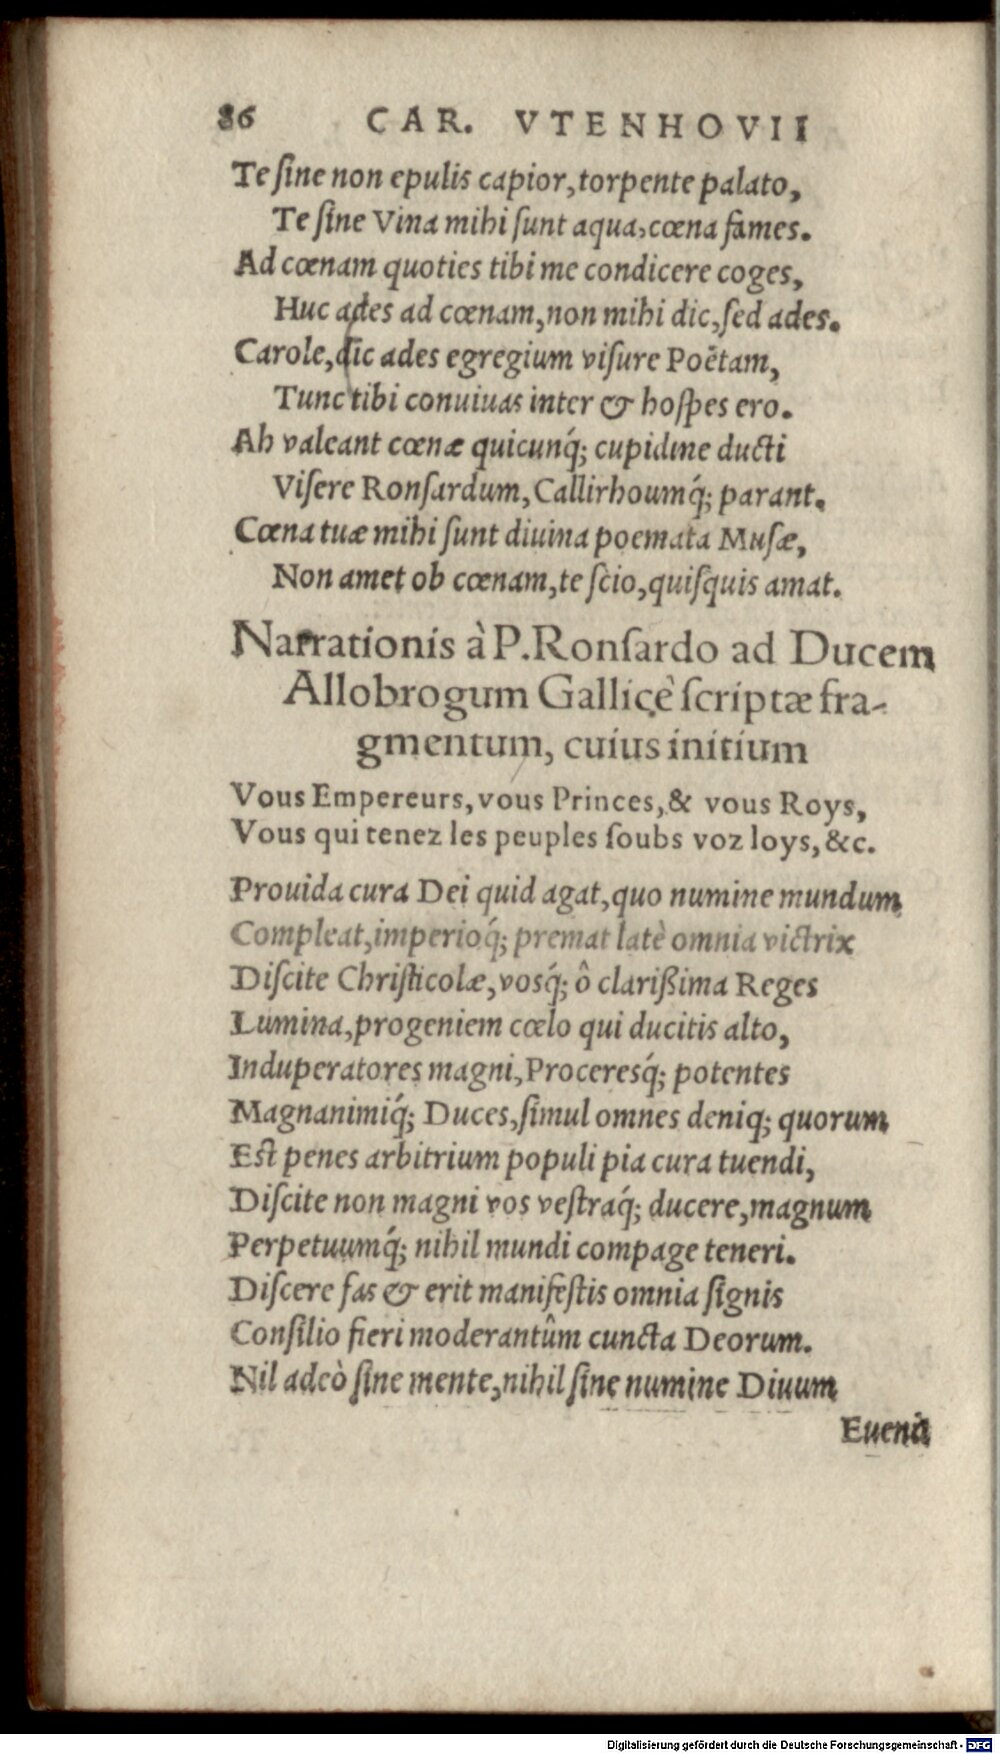 86 CAR. VTENHOVII
Te ſine non epulis capior, torpente palato,
Te ſine Vina mihi ſunt aqua, cœna fames.
Ad cœnam quoties tibi me condicere coges,
Huc ades ad cœnam, non mihi dic, ſed ades.
Carole, dic ades egregium viſure Poëtam,
Tunc tibi conuiuas inter & hoſpes ero.
Ah valeant cœnæ quicunq́; cupidine ducti
Viſere Ronſardum, Callirhoumq́; parant.
Cœna tuæ mihi ſunt diuina poemata Muſæ,
Non amet ob cœnam, te ſcio, quiſquis amat.
Narrationis à P. Ronſardo ad Ducem
Allobrogum Gallicè ſcriptæ fra-
gmentum, cuius initium
Vous Empereurs, vous Princes, & vous Roys,
Vous qui tenez les peuples ſoubs voz loys, &c.
Prouida cura Dei quid agat, quo numine mundum
Compleat, imperioq́; premat latè omnia victrix
Diſcite Chriſticolæ, vosq́; ô clariſſima Reges
Lumina, progeniem cœlo qui ducitis alto,
Induperatores magni, Proceresq́; potentes
Magnanimiq́; Duces, ſimul omnes deniq; quorum
Eſt penes arbitrium populi pia cura tuendi,
Diſcite non magni vos veſtraq́; ducere, magnum
Perpetuumq́; nihil mundi compage teneri.
Diſcere fas & erit manifeſtis omnia ſignis
Conſilio fieri moderantûm cuncta Deorum.
Nil adeò ſine mente, nihil ſine numine Diuum
Euenit
Digitalisierung gefördert durch die Deutsche Forschungsgemeinschaft - DFG